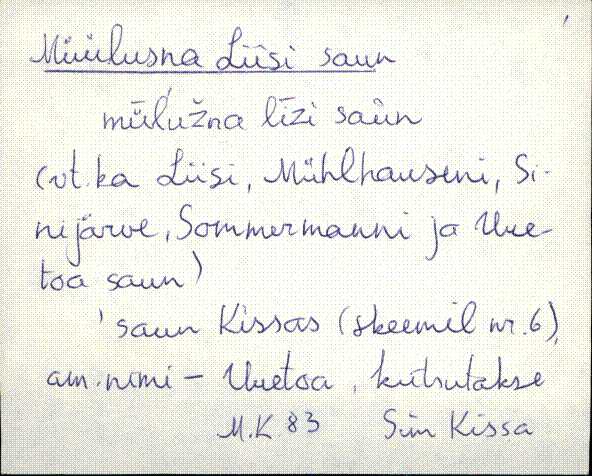 Müülusna Liisi saun
mǖlužna līzi saùn
(vt. ka Liisi, Mühlhauseni, Si-
nijärve, Sommermanni ja Uue-
toa saun)
' saun Kissas (skeemil nr. 6),
am. nimi – Uuetoa, kutsutakse
M.K 83 Sim Kissa